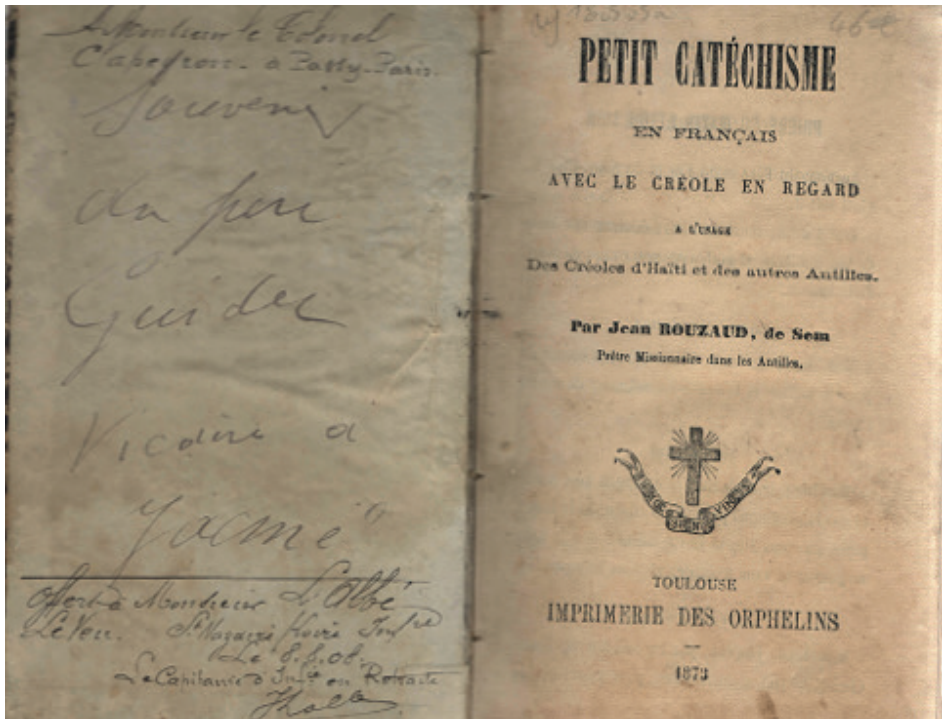 A Monsieur le Colonel
Capeyron - à Passy-Paris.
Souvenir
du père
Guides
Vicaire a
Jacmel"
offert à Monsieur L'Abbé
Le Ven. St Nazaire
Le 8.8.08.
Le Capitaine d' en Retraite
46 €
PETIT CATÉCHISME
EN FRANÇAIS
AVEC LE CRÉOLE EN REGARD
A L'USAGE
Des Créoles d'Haïti et des autres Antilles.
Par Jean ROUZAUD, de Sem
Prêtre Missionnaire dans les Antilles.
TOULOUSE
IMPRIMERIE DES ORPHELINS
1873